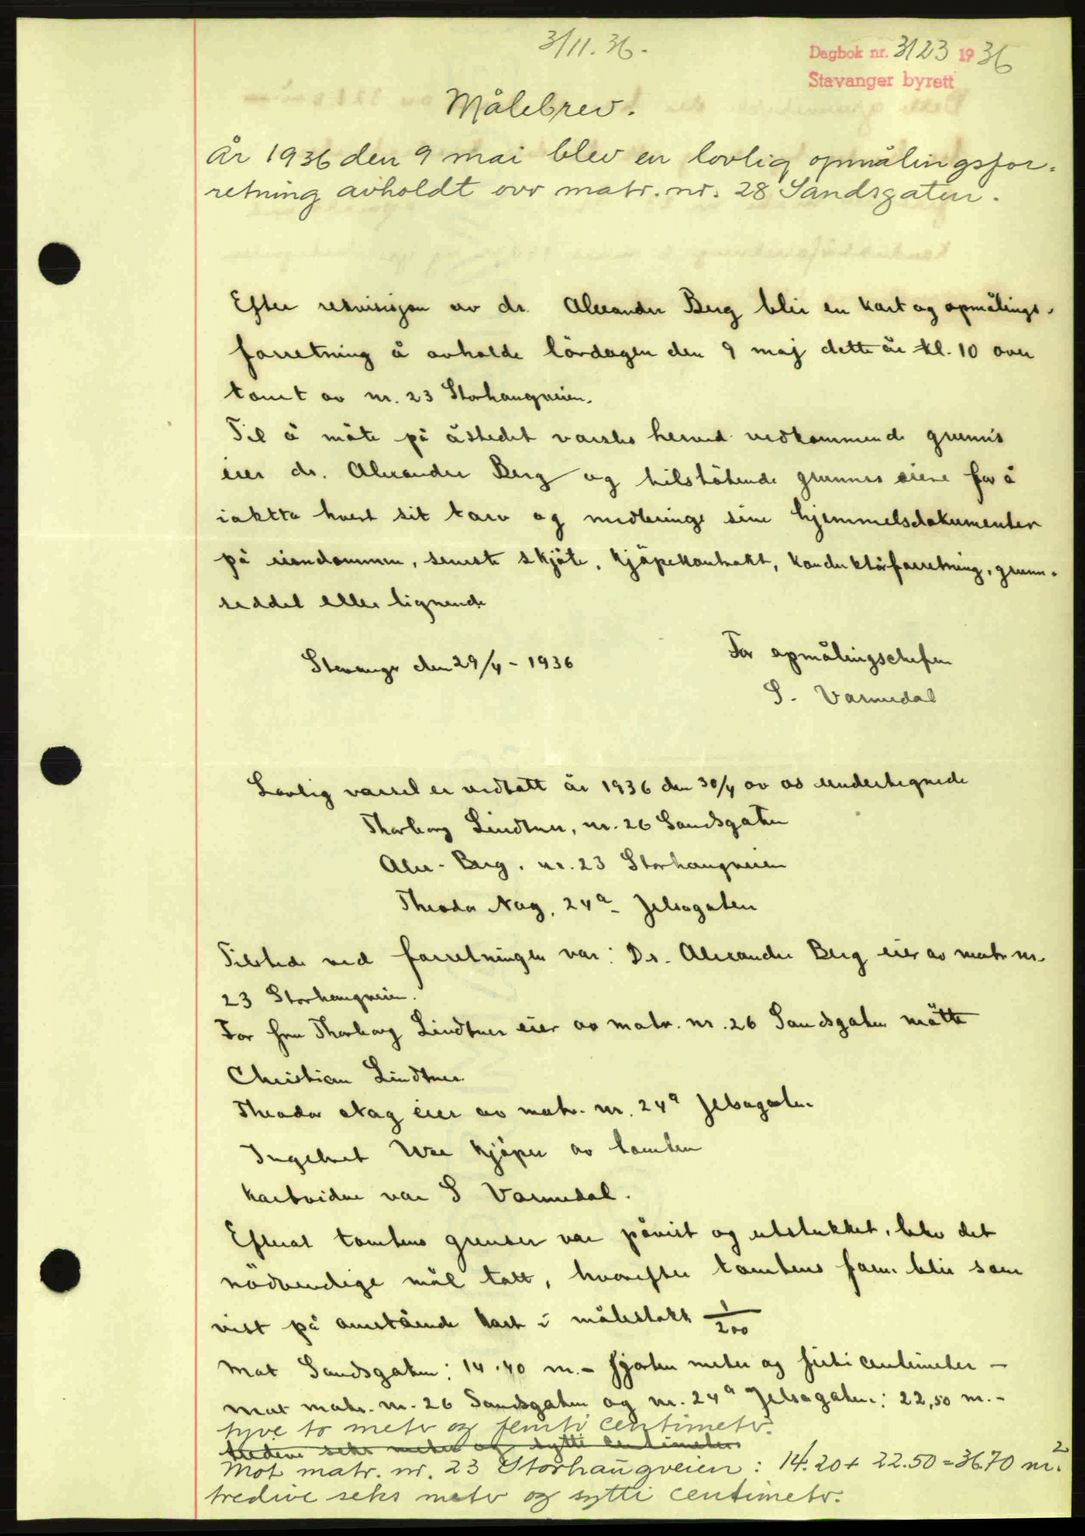 3/11. 36.
Dagbok nr. 3123 1936
Stavanger byrett
Målebrev.
År 1936 den 9 mai blev en lovlig opmålingsfor-
retning avholdt over matr. nr. 28 Sandsgaten.
Efter rekvisisjon av dr. Alexander Berg blir en kart og opmålings-
forretning å avholde lördagen den 9 maj dette år kl. 10 over
tomt av nr. 23 Storhaugveien.
Til å möte på åstedet varsles herved vedkommende grunns
eier dr. Alexander Berg og tilstötende grunners eiere for å
iaktta hvert sit tarv og medbringe sine hjemmelsdokumenter
på eiendommen, seneste skjöte, kjöpekontrakt, konduktörforretning, grunn-
seddel eller lignende
Stavanger den 29/4 - 1936
For opmålingschefen
S. Varmedal
Lovlig varsel er vedtatt år 1936 den 30/4 av os undertegnede
Thorborg Lindtner, nr. 26 Sandsgaten
Alex. Berg. nr. 23 Storhaugveien
Theodor Nag, 24a - Jelsagaten
Tilstede ved forretningen var: Dr. Alexander Berg eier av matr. nr.
23 Storhaugveien.
For fru Thorborg Lindtner eier av matr. nr. 26 Sandsgaten mötte
Christian Lindtner.
Theodor Nag eier av matr. nr. 24a Jelsagaten
Ingebret kjöper av tomten
Kartvidne var S Varmedal.
Efterat tomtens grenser var påvist og utstukket, blev det
nödvendige mål tatt, hvorefter tomtens form blir som
vist på omstående kart i målestokk 1/200
Mot Sandsgaten: 14.40 m. - fjorten meter og firti centimeter -
Mot matr. nr. 26 Sandsgaten og nr. 24a Jelsagaten: 22,50 m. -
tyve to meter og femti centimeter.
tredive seks meter og sytti centimeter
Mot matr. nr. 23 Storhaugveien: 14.20 + 22.50 = 36.70 m.²
tredive seks meter og sytti centimeter.